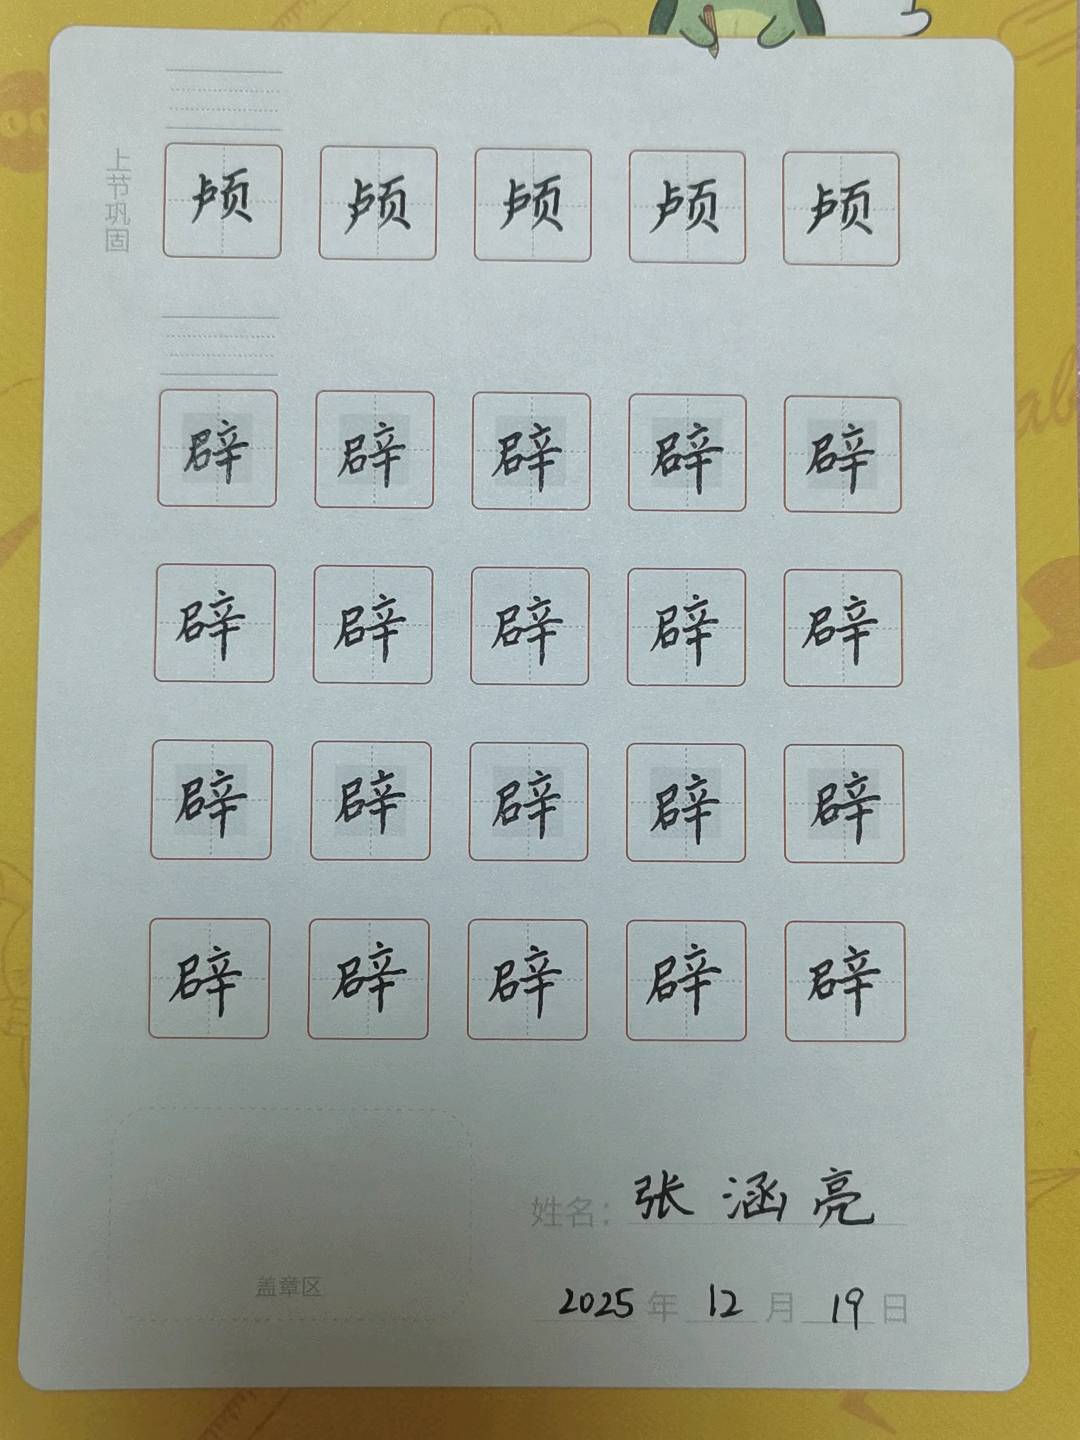 上节巩固
颅 颅 颅 颅 颅
辟 辟 辟 辟 辟
辟 辟 辟 辟 辟
辟 辟 辟 辟 辟
辟 辟 辟 辟 辟
姓名：张涵亮
盖章区
2025年12月19日